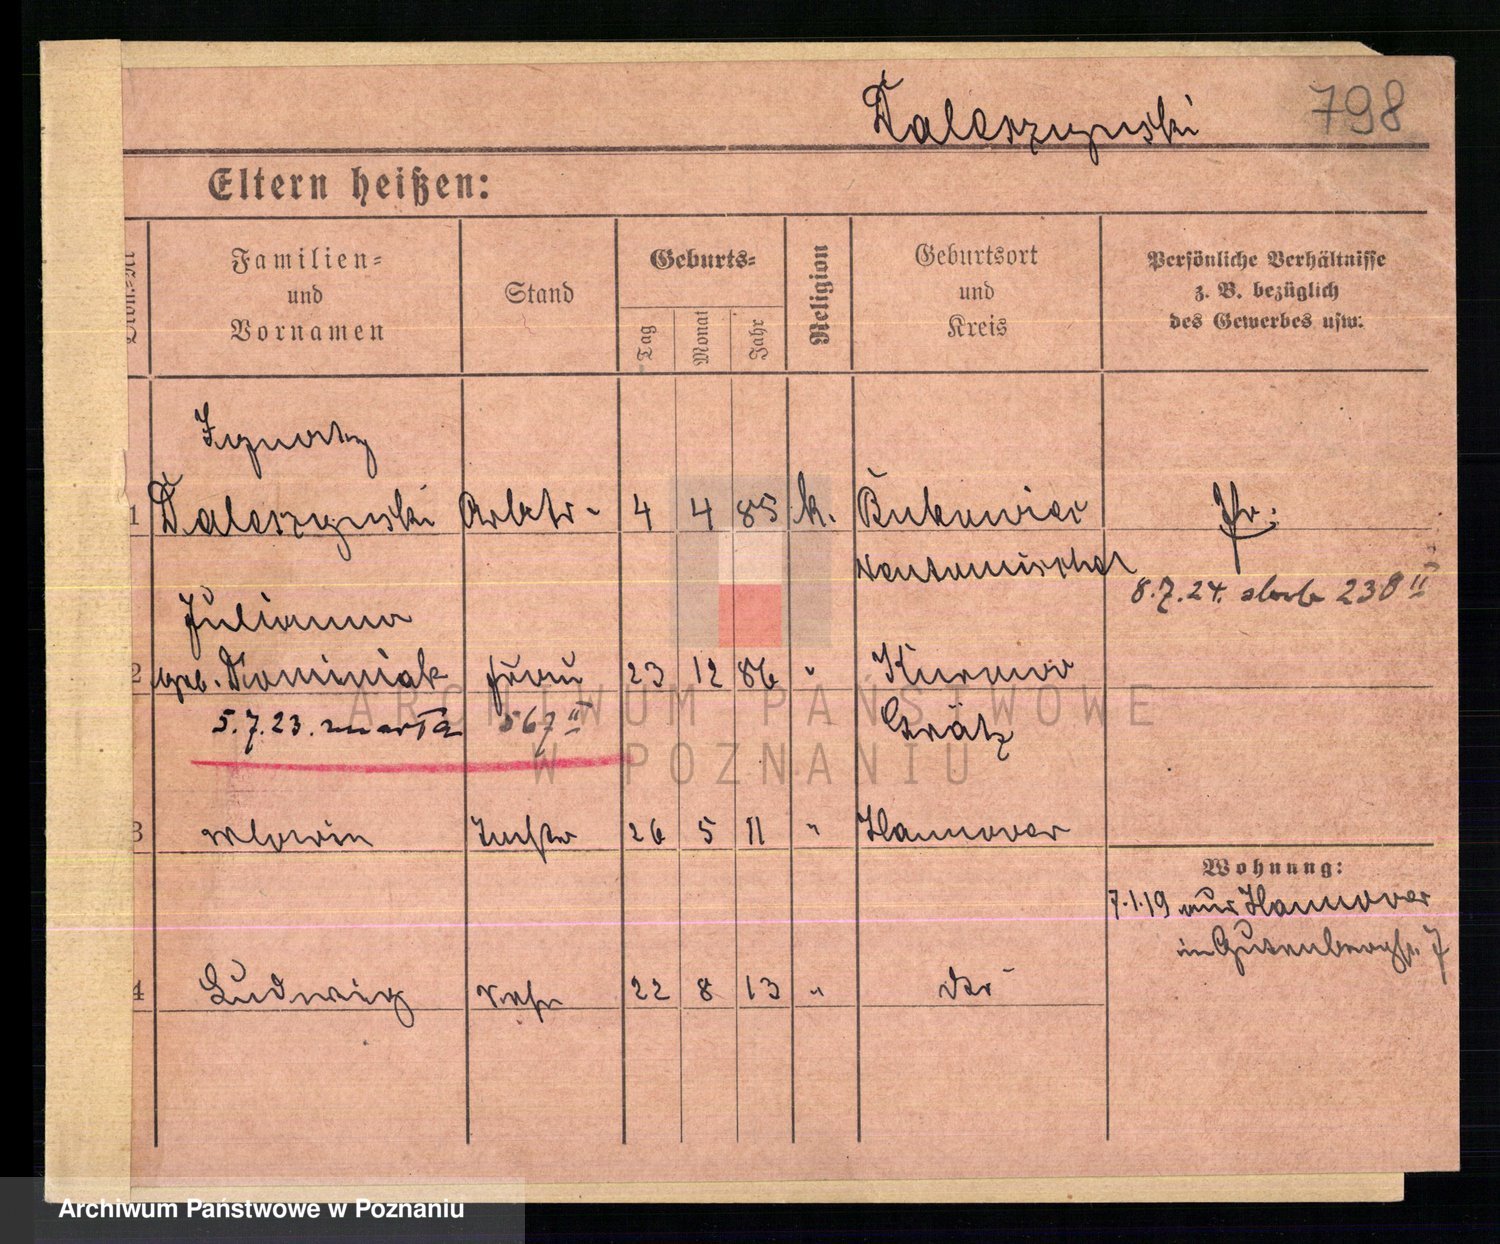 Daleszynski 798
Eltern heißen:
Familien=
und
Vornamen
Stand
Geburts=
Tag
Monat
Jahr
Religion
Geburtsort
und
Kreis
Persönliche Verhältnisse
z. B. bezüglich
des Gewerbes usw.
Ignatz
1 Daleszynski Arbtr. 4 4 85 k. Bukowiec Pr.
Neutomischel
8.7.24. 238 II
Julianna
2 geb. Dominiak Frau 23 12 86 " Kurowo
5.7.23. zmarła 567 II Grätz
3 Tochter 26 5 11 " Hannover
Wohnung:
7.1.19 aus Hannover
in Gutenbergstr. 7
4 Ludwig Sohn 22 8 13 "
ARCHIWUM PAŃSTWOWE
W POZNANIU
Archiwum Państwowe w Poznaniu